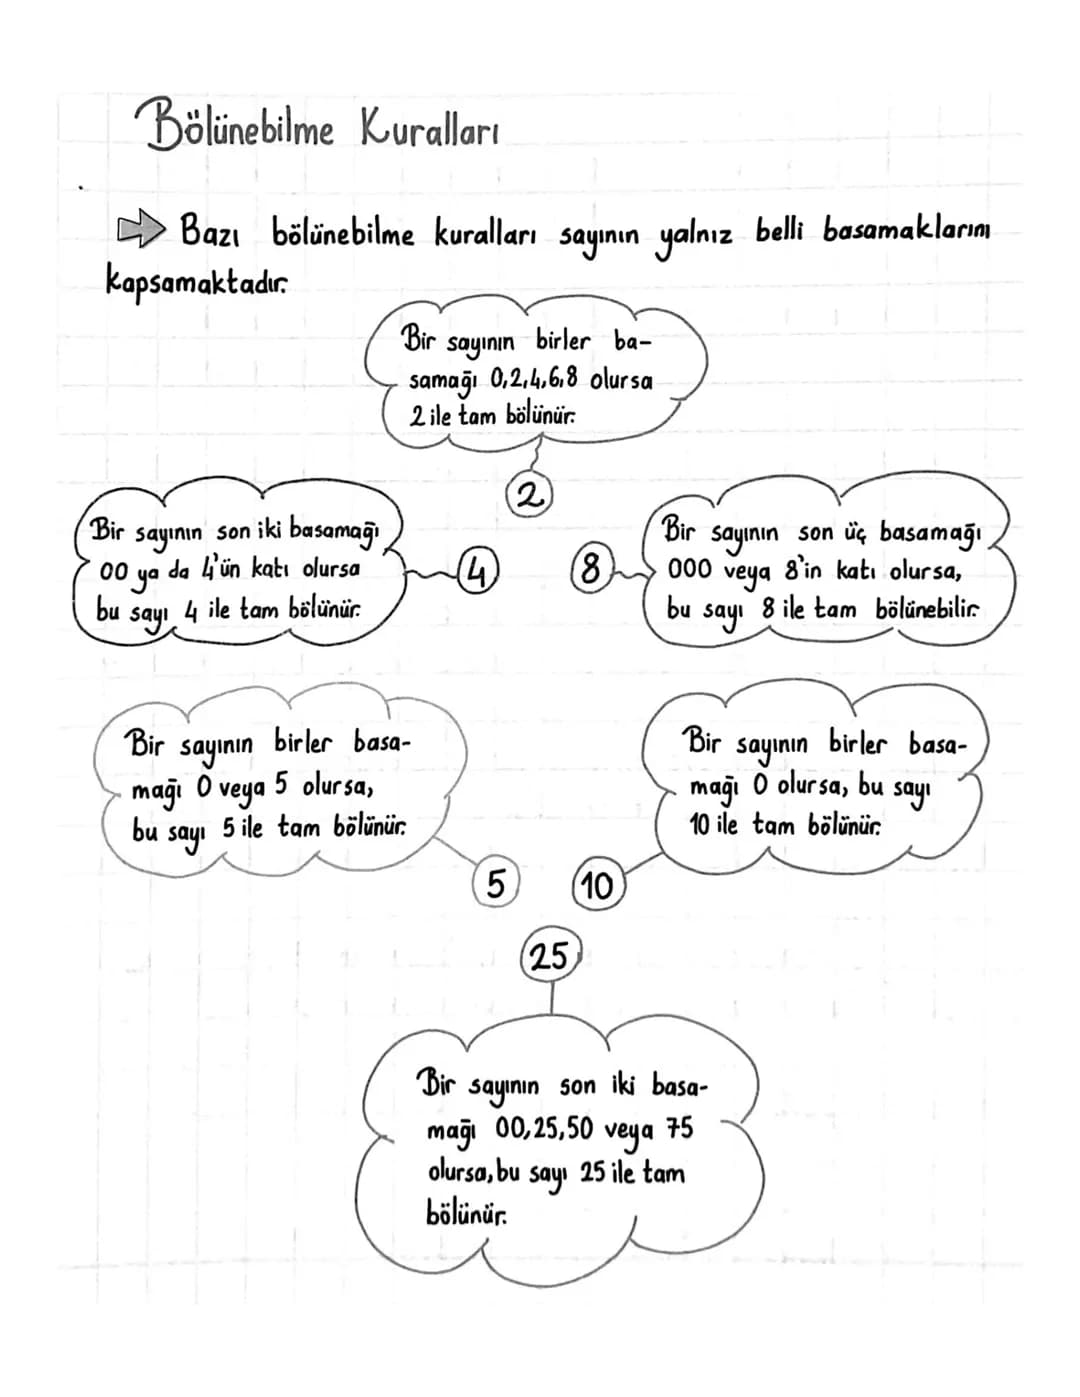 Bölünebilme Kuralları
Bazı bölünebilme kuralları sayının yalnız belli basamaklarını
kapsamaktadır.
Bir sayının birler ba-
samağı 0,2,4,6,8 olursa
2 ile tam bölünür.
2
Bir sayının son iki basamağı
00 ya da 4'ün katı olursa
bu sayı 4 ile tam bölünür.
4
8
Bir sayının son üç basamağı
000 veya 8'in katı olursa,
bu sayı 8 ile tam bölünebilir.
Bir sayının birler basa-
mağı 0 veya 5 olursa,
bu sayı 5 ile tam bölünür.
5
Bir sayının birler basa-
mağı 0 olursa, bu sayı
10 ile tam bölünür.
10
25
Bir sayının son iki basa-
mağı 00,25,50 veya 75
olursa, bu sayı 25 ile tam
bölünür.